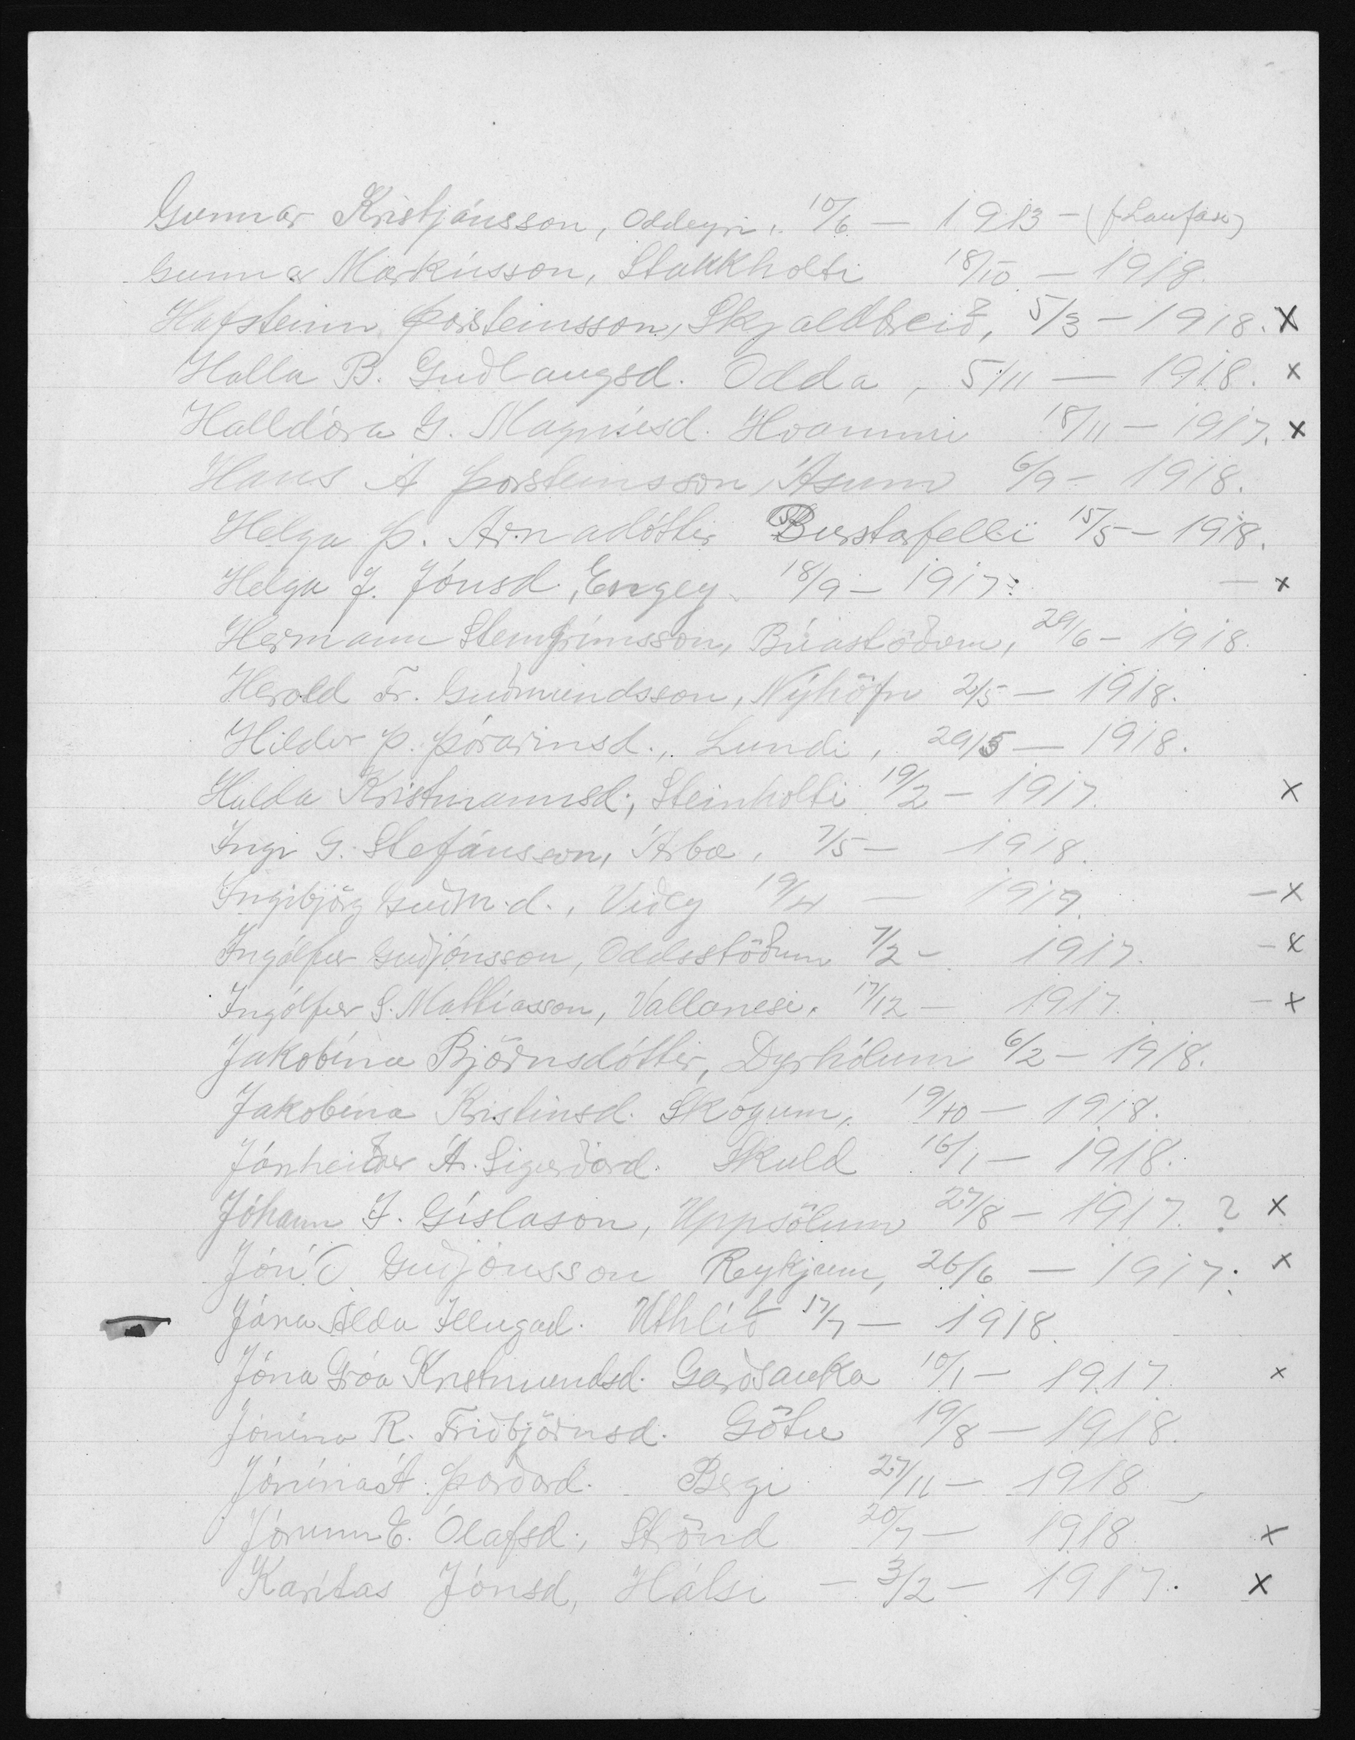 Gunnar Kristjánsson, Oddeyri, 10/6 — 1913 — (f. Laufási)
Gunnar Markússon, Stakkholti 18/10 — 1918.
Hafsteinn Þorsteinsson, Skjaldbreið, 5/3 — 1918. x
Halla B. Guðlaugsd. Odda, 5/11 — 1918. x
Halldóra G. Magnúsd. Hvammi 18/11 — 1917. x
Hans A Þorsteinsson, Ásum 6/9 — 1918.
Helga Þ. Árnadóttir Burstafelli 15/5 — 1918.
Helga J. Jónsd, Engey 18/9 — 1917. — x
Hermann Steingrímsson, Búastöðum, 29/6 — 1918.
Herold Fr. Guðmundsson, Nýhöfn 2/5 — 1918.
Hildur Þ. Þórarinsd., Lundi, 29/5 — 1918.
Hulda Kristmannsd., Steinholti 19/2 — 1917. x
Ingi G. Stefánsson, Árbæ, 7/5 — 1918.
Ingibjörg Guðm.d., Viðey 19/4 — 1917. — x
Ingólfur Guðjónsson, Oddsstöðum 7/2 — 1917. — x
Ingólfur S. Mattíasson, Vallanesi. 17/12 — 1917. — x
Jakobína Björnsdóttir, Dyrhólum 6/2 — 1918.
Jakobína Kristinsd. Skógum, 19/10 — 1918.
Jónheiður Á. Sigurðard. Skuld 16/1 — 1918.
Jóhann J. Gíslason, Uppsölum 27/8 — 1917. ? x
Jón Ó Guðjónsson Reykjum, 26/6 — 1917. x
Jóna Alda Illugad. Úthlíð 17/7 — 1918.
Jóna Gróa Kristmundsd. Garðsauka 10/1 — 1917. x
Jónína R. Friðbjörnsd. Götu 19/8 — 1918.
Jónína Á. Þórðard. Bergi 27/11 — 1918
Jórunn E. Ólafsd., Strönd 20/7 — 1918. x
Karítas Jónsd, Hálsi — 3/2 — 1917. x